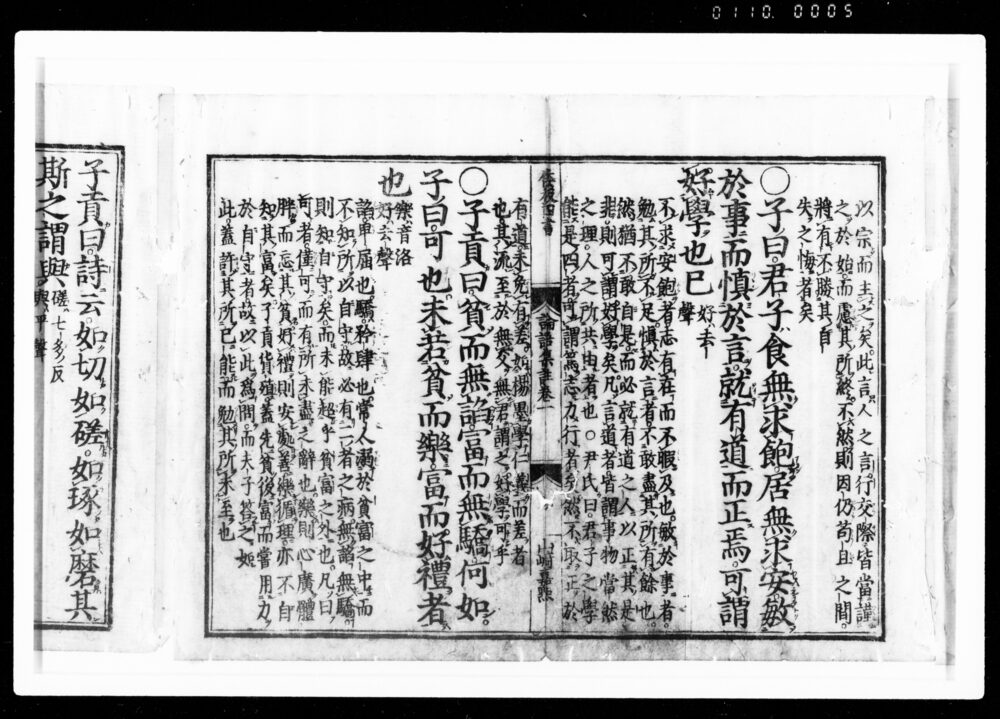 0110 0005
以宗而主之矣。此言人之言行交際皆當謹
之於始而慮其所終。不然則因仍苟且之間。
將有不勝其自
失之悔者矣
〇子曰。君子食無求飽。居無求安。敏
於事而慎於言。就有道而正焉。可謂
好學也已 好去聲
不求安飽者。志有在而不暇及也。敏於事者。
勉其所不足。慎於言者。不敢盡其所有餘也。
然猶不敢自是。而必就有道之人。以正其是
非。則可謂好學矣。凡言道者。皆謂事物當然
之理。人之所共由者也。〇尹氏曰。君子之學
能是四者。可謂篤志力行者矣。然不取正於
板四書 論語集註卷一 山崎嘉點
有道。未免有差。如楊墨學仁義而差者
也。其流至於無父無君。謂之好學可乎
〇子貢曰。貧而無諂。富而無驕。何如。
子曰。可也。未若貧而樂。富而好禮者
也 樂音洛 好去聲
諂。卑屈也。驕。矜肆也。常人溺於貧富之中。而
不知所以自守。故必有二者之病。無諂無驕。
則知自守矣。而未能超乎貧富之外也。凡曰
可者。僅可而有所未盡之辭也。樂則心廣體
胖而忘其貧。好禮則安處善。樂循理。亦不自
知其富矣。子貢貨殖。蓋先貧後富。而嘗用力
於自守者。故以此為問。而夫子答之如
此。蓋許其所已能。而勉其所未至也
子貢曰。詩云。如切如磋。如琢如磨。其
斯之謂與 磋七多反 與平聲